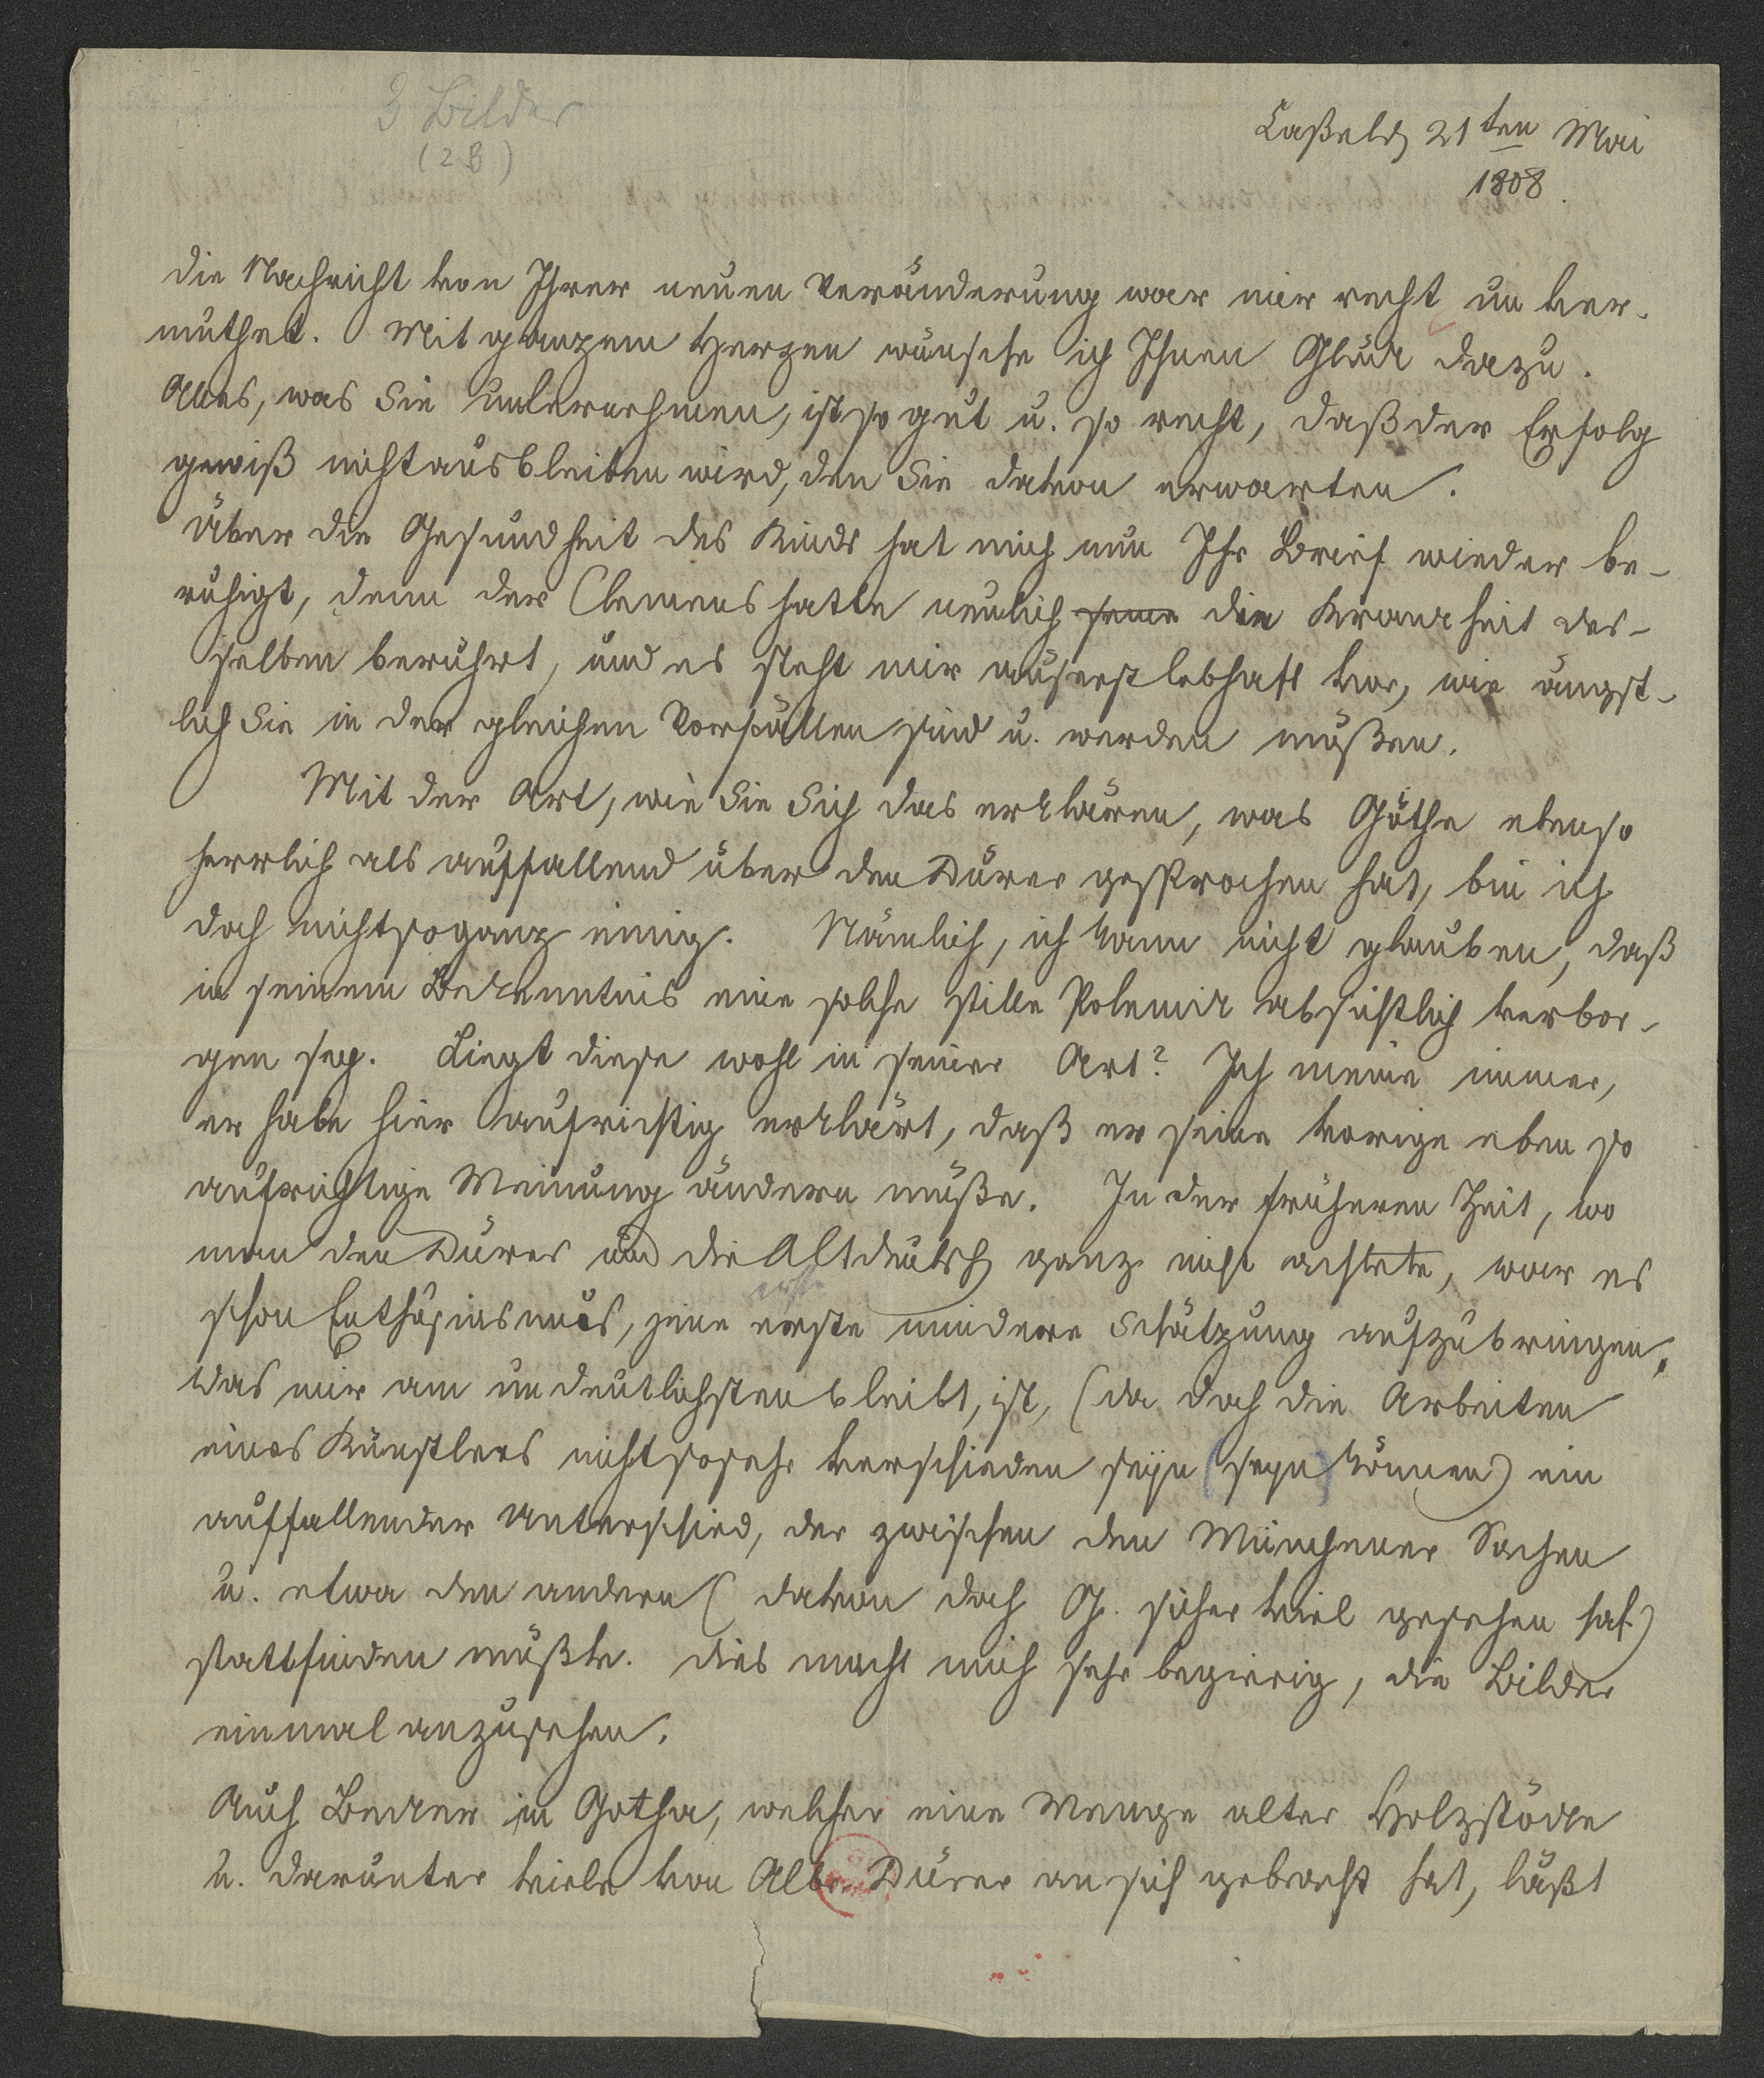 3 Bilder
(2 B)
Caßel d, 21ten Mai
1808.
die Nachricht von Ihrer neuen Veränderung war mir recht un ver-
muthet. Mit ganzem Herzen wünsche ich Ihnen Glück dazu.
Alles, was Sie unternehmen, ist so gut u. so recht, daß der Erfolg
gewiß nicht ausbleiben wird, den Sie davon erwarten.
Über die Gesundheit des Kinds hat mich nun Ihr Brief wieder be-
ruhigt, denn der Clemens hatte neulich seine die Krankheit des-
selben berührt, und es steht mir äuserst lebhaft vor, wie ängst-
lich Sie in der gleichen Vorfällen sind u. werden müßen.
Mit der Art, wie Sie Sich das erklären, was Göthe ebenso
herrlich als auffallend über den Dürer gesprochen hat, bin ich
doch nicht so ganz einig. Nämlich, ich kann nicht glauben, daß
in seinem Bekenntnis eine solche stille Polemik absichtlich verbor-
gen sey. Liegt diese wohl in seiner Art? Ich meine immer,
er habe hier aufrichtig erklärt, daß er seine vorige eben so
aufrichtige Meinung ändern müße. In der früheren Zeit, wo
man den Dürer und die Altdeutsch ganz nicht achtete, war es
erste
schon Enthusiasmus, jene erste mindere Schätzung aufzubringen,
was mir am undeutlichsten bleibt, ist, (da doch die Arbeiten
eines Künstlers nicht so sehr verschieden seyn (seyn) können) ein
auffallender Unterschied, der zwischen den Münchener Sachen
u. etwa den andern (davon doch G. sicher viel gesehen hat)
stattfinden müßte. dies macht mich sehr begierig, die Bilder
einmal anzusehen.
Auch Becker in Gotha, welcher eine Menge alter Holzstöcke
u. darunter viele von Albr. Dürer an sich gebracht hat, läßt